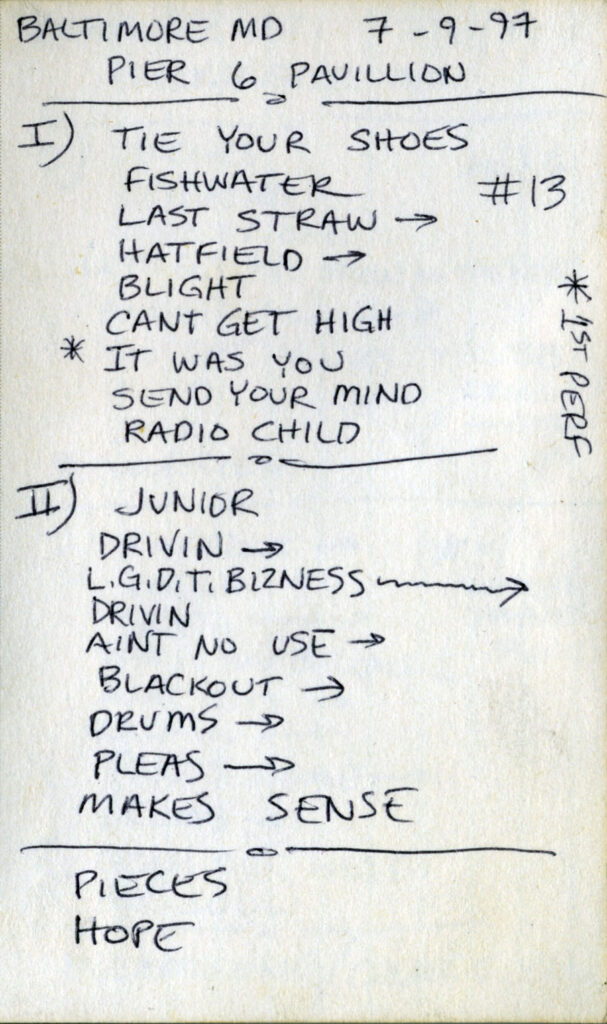 BALTIMORE MD 7-9-97
PIER 6 PAVILLION
I) TIE YOUR SHOES
FISHWATER #13
LAST STRAW →
HATFIELD →
BLIGHT
CANT GET HIGH
* IT WAS YOU
SEND YOUR MIND
RADIO CHILD
* 1ST PERF
II) JUNIOR
DRIVIN →
L.G.D.T. BIZNESS →
DRIVIN
AINT NO USE →
BLACKOUT →
DRUMS →
PLEAS →
MAKES SENSE
PIECES
HOPE